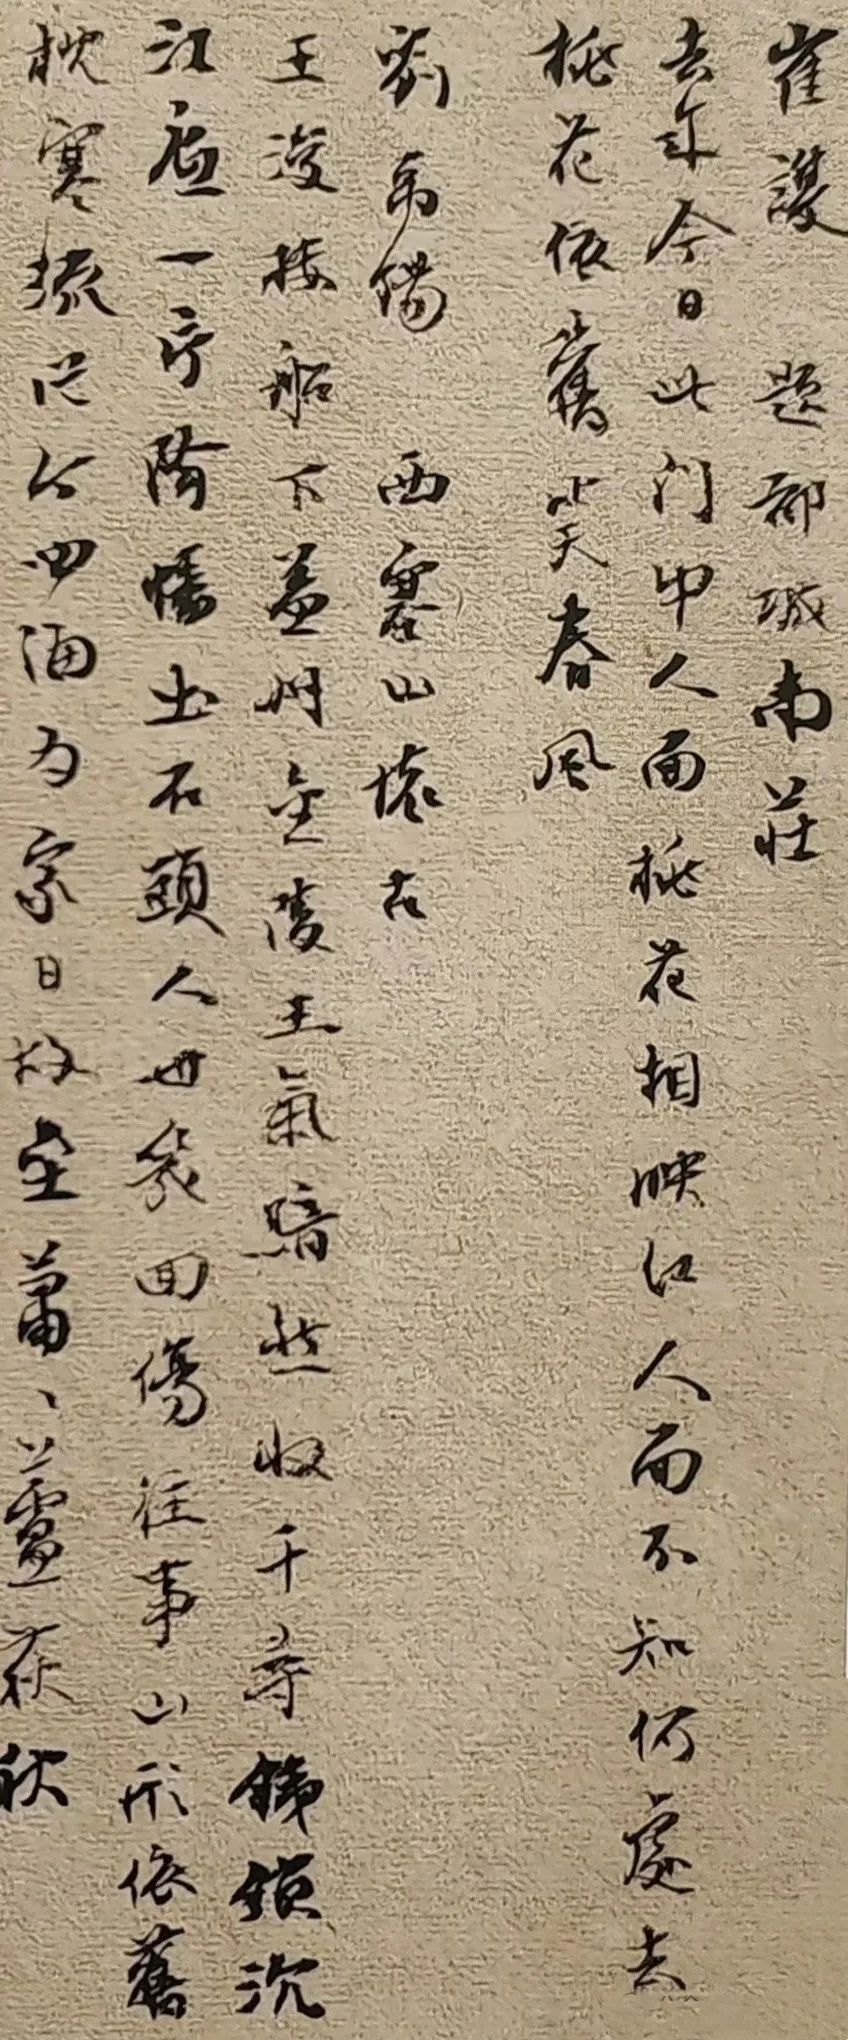 崔護 題都城南莊
去年今日此门中人面桃花相映红人面不知何處去
桃花依舊笑春風
劉禹錫 西塞山懷古
王濬楼船下益州金陵王氣黯然收千尋鐵鎖沉
江底一片降幡出石頭人世幾回傷往事山形依舊
枕寒流從今四海为家日故壘蕭、蘆荻秋